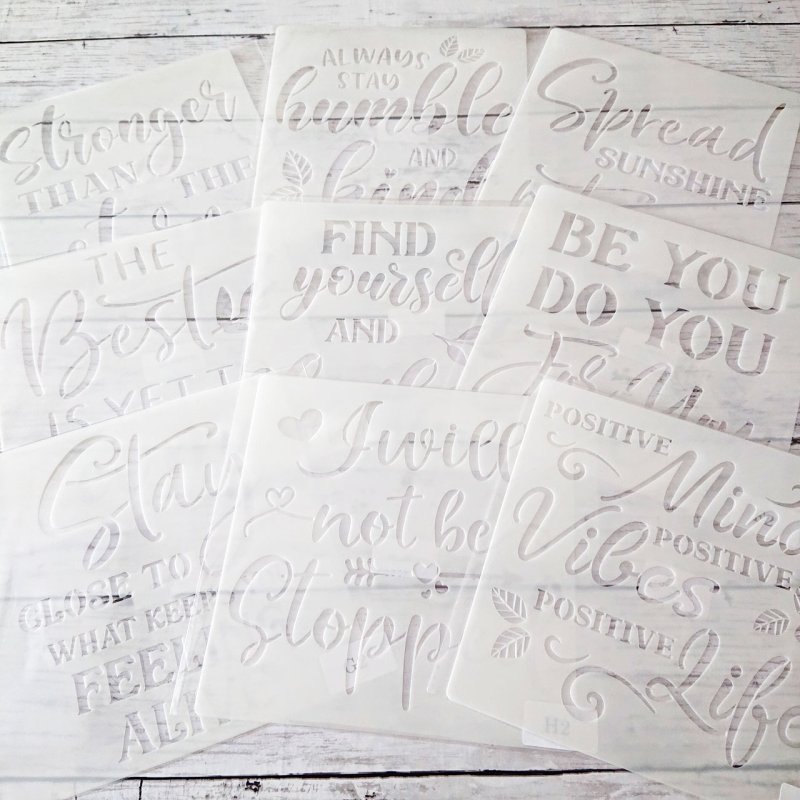 stronger
THAN THE
ALWAYS
STAY
humble
AND
kind
Spread
SUNSHINE
THE
Best
IS YET T
FIND
yourself
AND
BE YOU
DO YOU
For You
Stay
CLOSE TO
WHAT KEEP
FEEL
ALI
I will
not be
Stopp
G
POSITIVE
Mind
POSITIVE
Vibes
POSITIVE
Life
H2